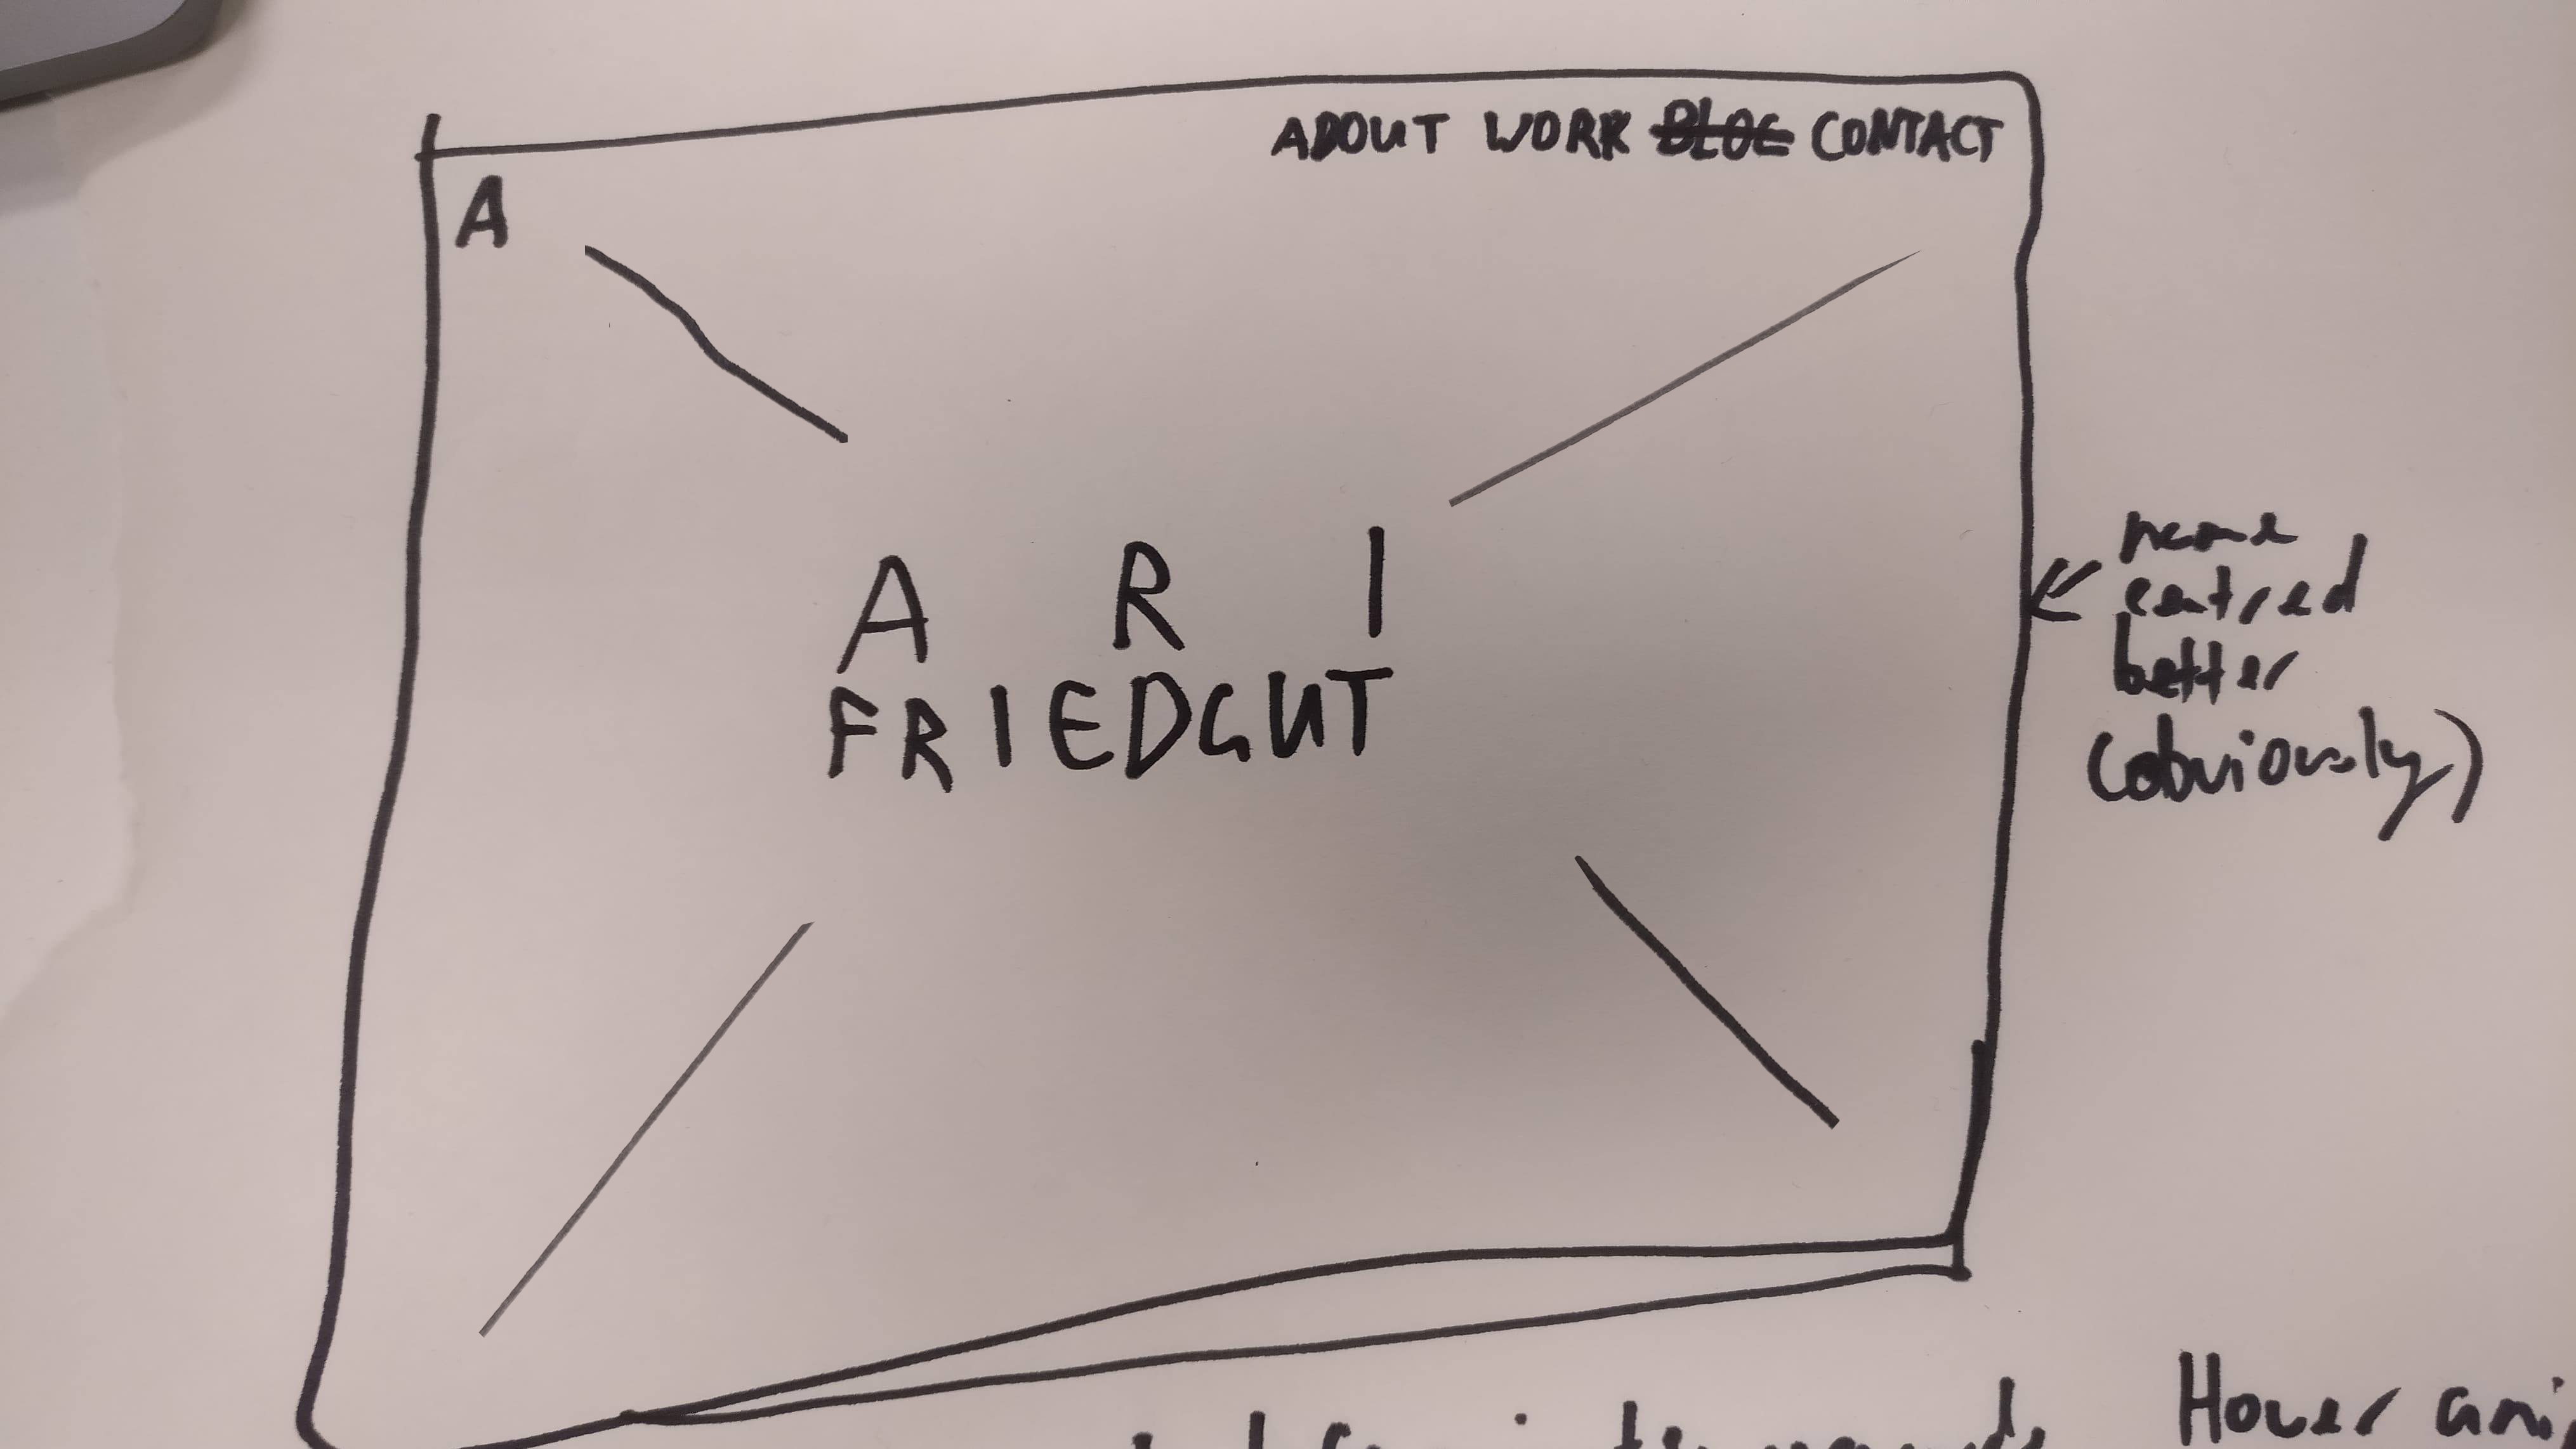 ABOUT WORK BLOG CONTACT
A
A R I
FRIEDGUT
name
centred
better
(obviously)
Hover